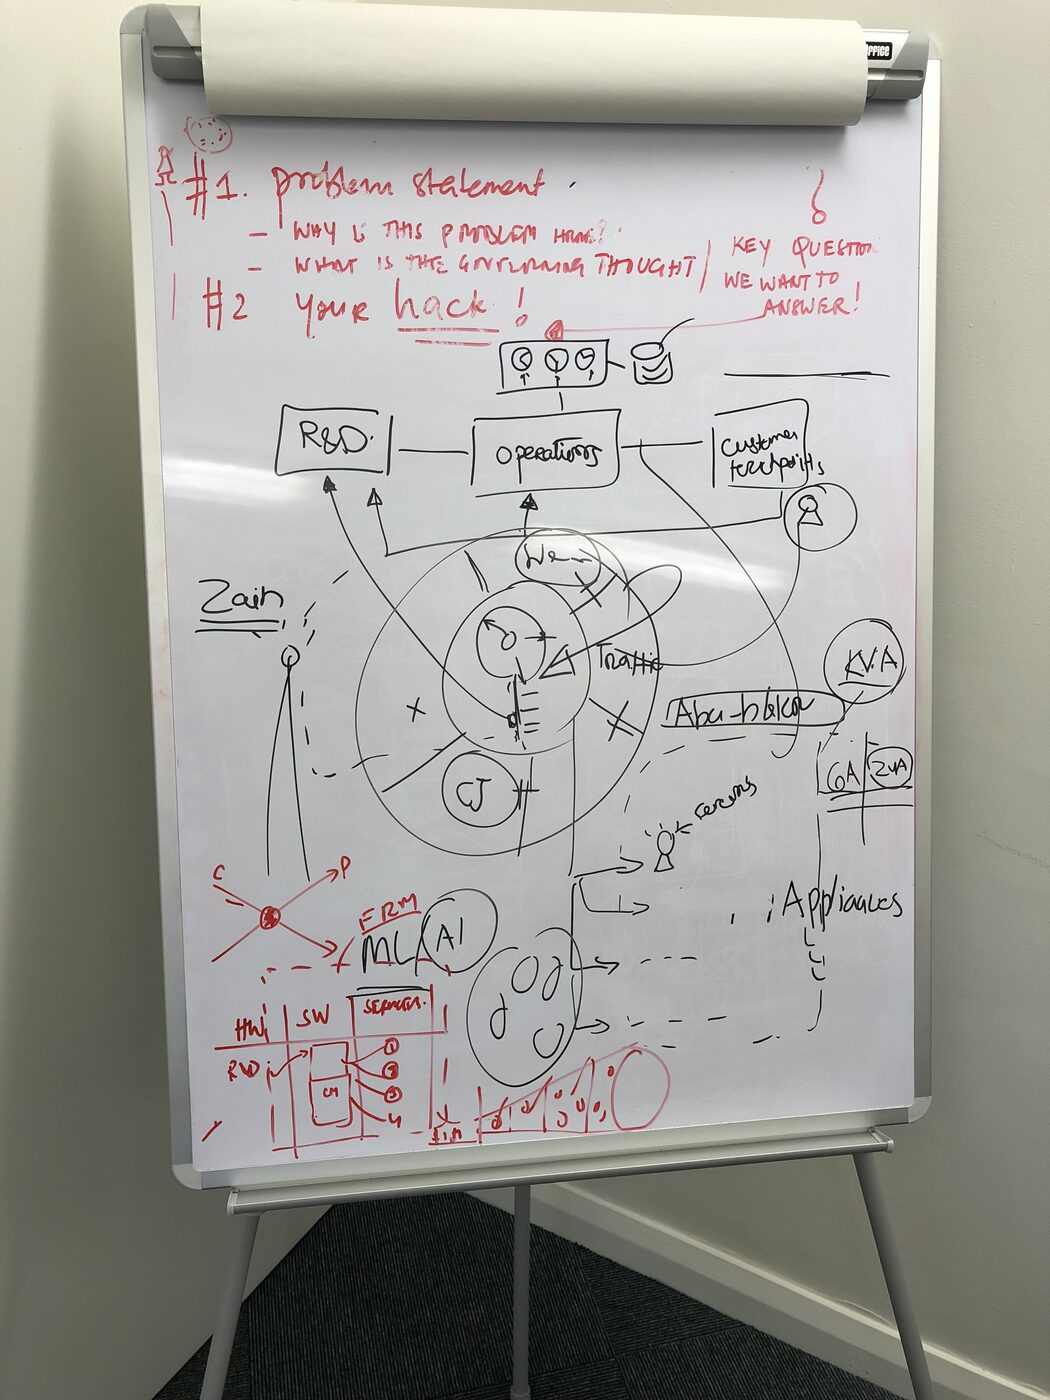 #1. problem statement
- WHY IS THIS PROBLEM HERE?
- WHAT IS THE GOVERNING THOUGHT /
KEY QUESTION
WE WANT TO
ANSWER!
#2 your hack!
R&D
Operations
Customer
touchpoints
Zain
Traffic
KVA
Abu-bakar
GA
ZVA
CJ
sensors
Appliances
C
P
FRM
ML/AI
HW
SW
SERVICES
R&D
1
2
3
4